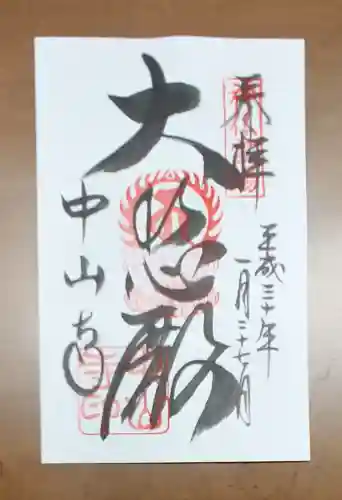 奉拝
平成三十年
一月二十七日
大悲殿
中山寺